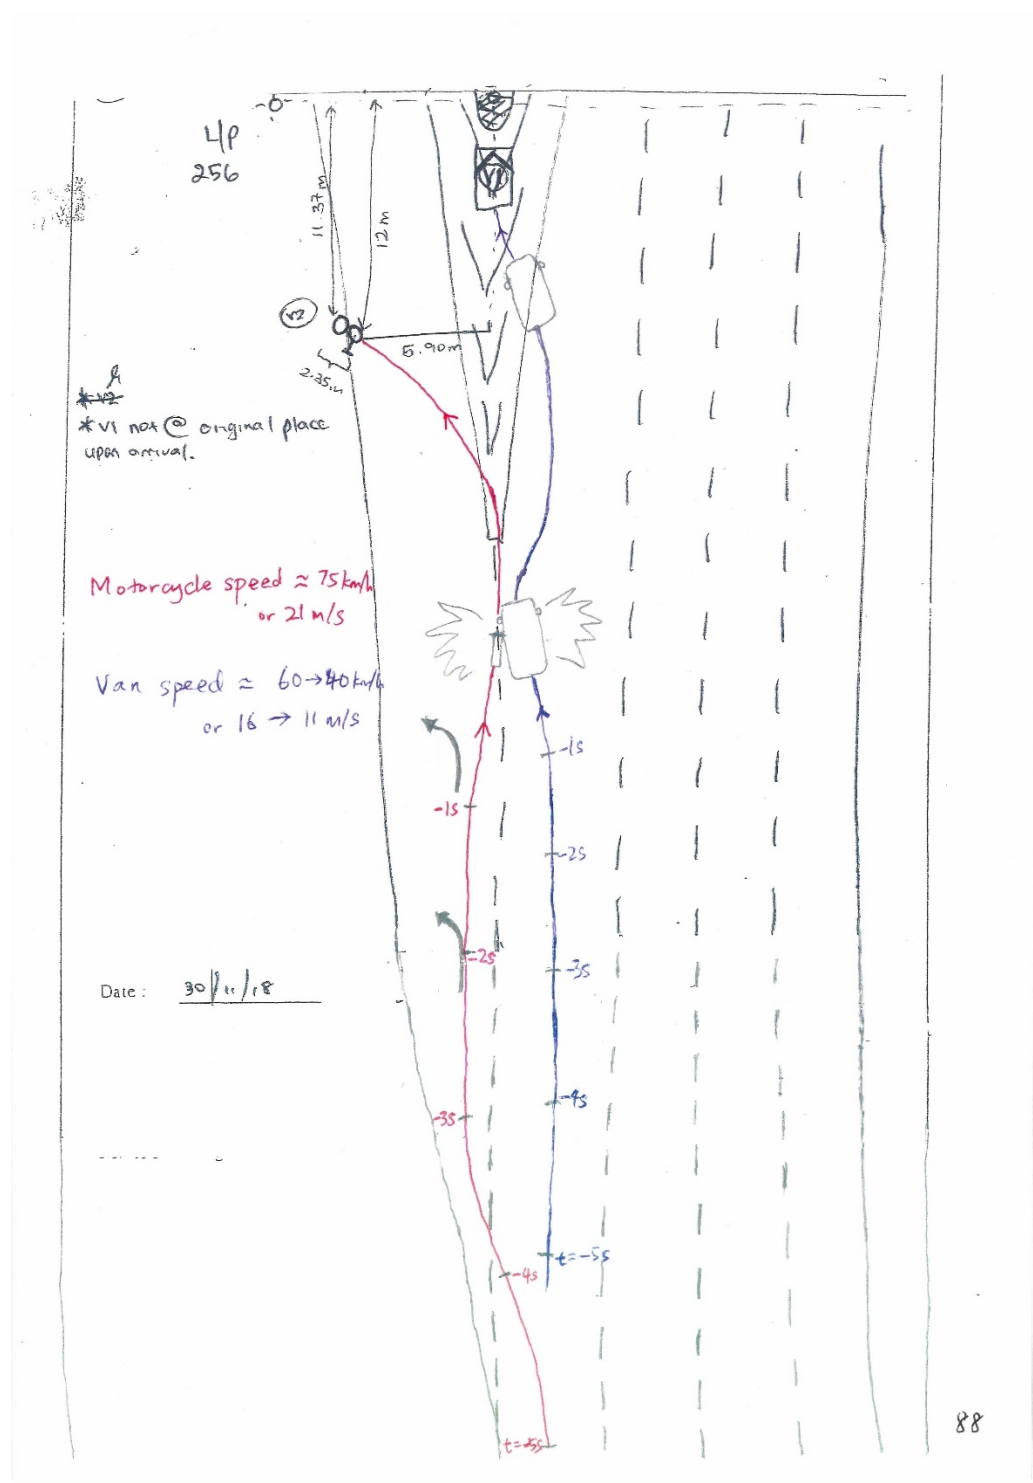 L/P
256
11.37m
12m
V1
V2
5.90m
2.35m
*V2
*V1 not @ original place
upon arrival.
Motorcycle speed ≈ 75km/h
or 21 m/s
Van speed ≈ 60→40km/h
or 16 → 11 m/s
-1s
-1s
-2s
-2s
-3s
Date : 30/11/18
-4s
-3s
t=-5s
-4s
t=-5s
88